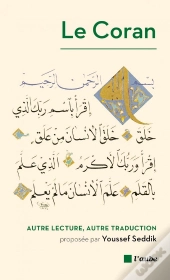 Le Coran
بسم الله الرحمن الرحيم
اقرأ باسم ربك الذي
خلق خلق الانسان من علق
اقرأ وربك الاكرم الذي علم
بالقلم علم الانسان ما لم يعلم
AUTRE LECTURE, AUTRE TRADUCTION
proposée par Youssef Seddik
l'aube